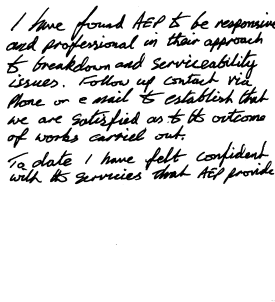 I have found AEP to be responsive
and professional in their approach
to breakdown and serviceability
issues. Follow up contact via
Phone or e mail to establish that
we are satisfied as to its outcome
of works carried out.
To date I have felt confident
with its services that AEP provide